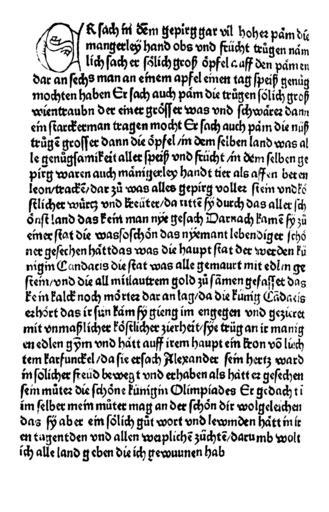 ER sach in dem gepirg gar vil hoher pām die
mangerley hand obs vnd frücht trůgen näm
lich sach er sölich groß öpfel auff den pämen
dar an sechs man an einem apfel einen tag speiß genůg
mochten haben Er sach auch pām die trůgen sölich groß
wientraubn der einer grösser was vnd schwärer dann
ein starcker man tragen mocht Er sach auch pām die nüß
trůgē grosser dann die öpfel/ in dem selben land was al
le genůgsamikeit aller speiß vnd frücht/ in dem selben ge
pirg waren auch mānigerley handt tier als affen beren
leon/ track̄e/ dar zů was alles gepirg voller stein vnd kö
stlicher würtz vnd kreüter/ da ritten sy durch das aller sch
önst land das kein man nye gesach Darnach kamē sy zů
einer stat die was so schön das nyemant lebendiger schö
ner gesechen hätt das was die haupt stat der werden kü
nigin Candacis die stat was alle gemaurt mit edlin ge
stein/ vnd die all mit lautrem gold zů sāmen gefasset das
kein kalck noch mörtez dar an lag/ da die künig Cādacis
erhört das ir sun kām sy gieng im engegen vnd gezieret
mit vnmaßlicher köstlicher zierheit/ sye trůg an ir manig
en edlen gym vnd hätt auff irem haupt ein kron vō liech
tem karfunckel/ da sie ersach Alexander sein hertz ward
in solicher freüd bewegt vnd erhaben als hätt er gesechen
sein můter die schöne künigin Olimpiades Er gedacht i
im selber mein můter mag an der schön dir wol geleichen
das sy aber ein sölich gůt wort vnd lewmden hätt in ir
en tagentden vnd allen weiplichē züchtē/ darumb wolt
ich alle land geben die ich gewunnen hab